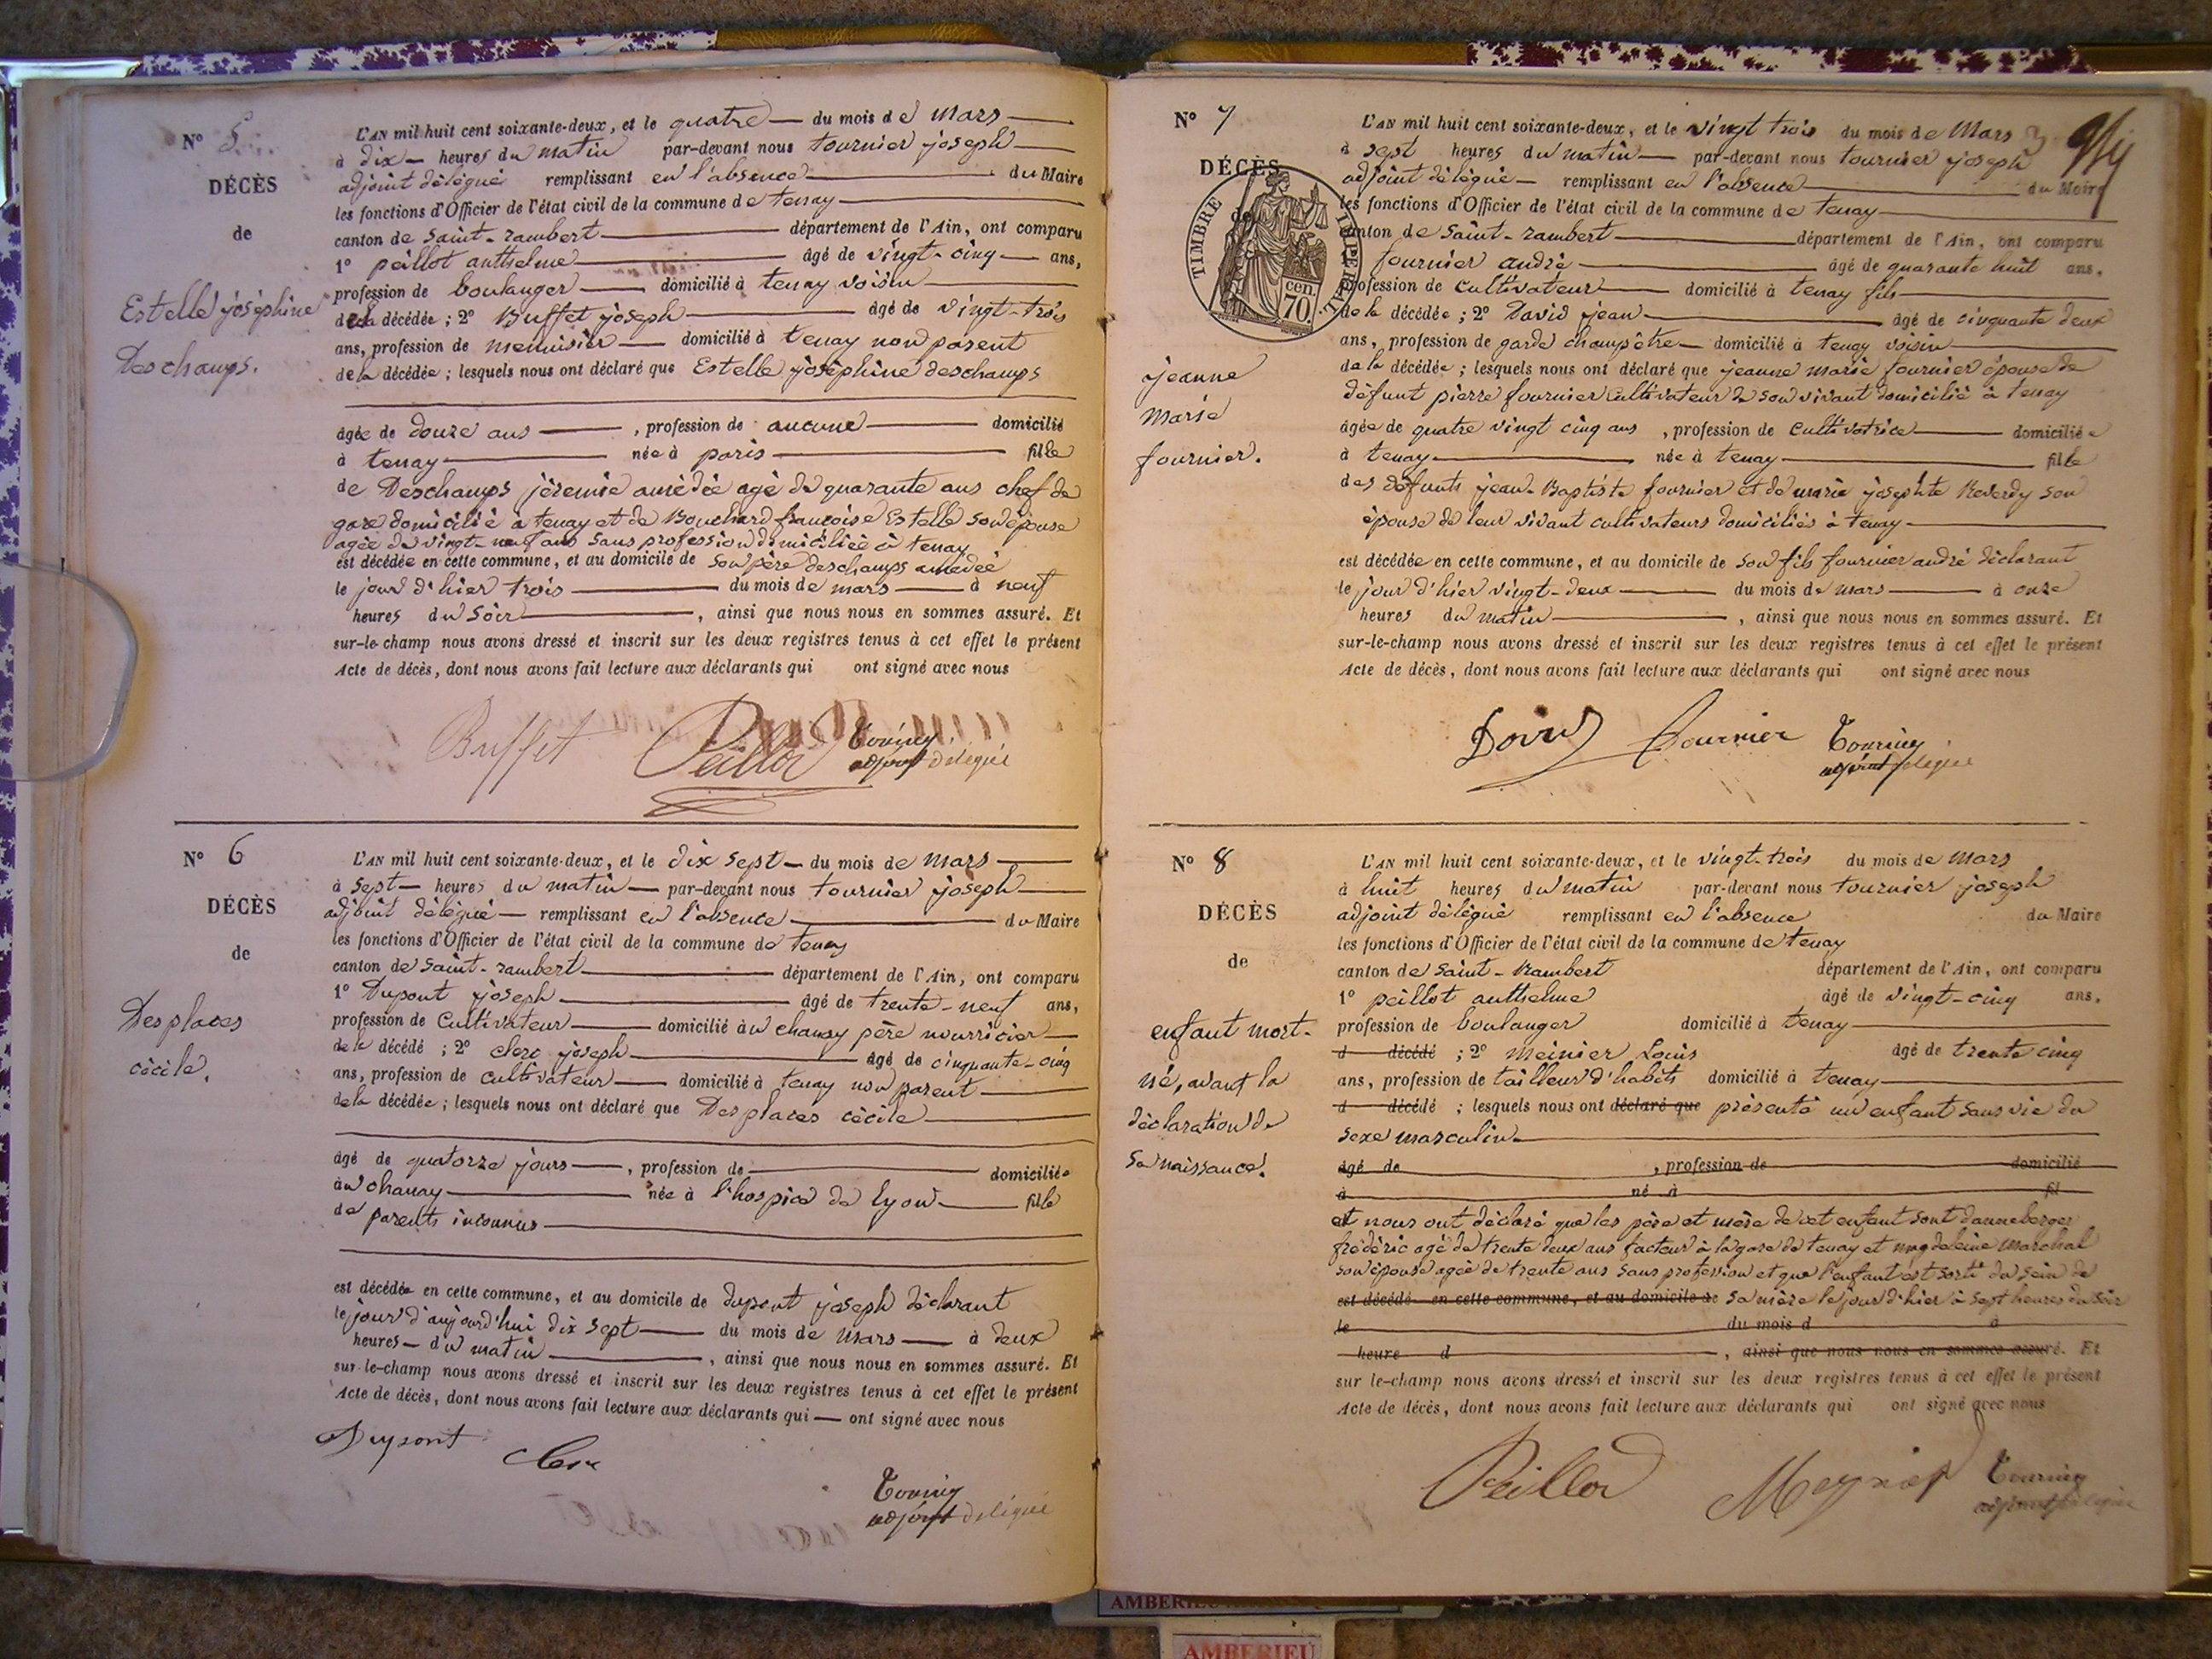 N° 5
DÉCÈS
de
Estelle joséphine
Deschamps.
L'AN mil huit cent soixante-deux, et le quatre du mois de Mars
à dix heures du matin par-devant nous tournier joseph
adjoint délégué remplissant en l'absence du Maire
les fonctions d'Officier de l'état civil de la commune de tenay
canton de Saint-rambert département de l'Ain, ont comparu
1° peillot anthelme âgé de vingt-cinq ans,
profession de boulanger domicilié à tenay voisin
de la décédée ; 2° Buffet joseph âgé de vingt-trois
ans, profession de menuisier domicilié à tenay non parent
de la décédée ; lesquels nous ont déclaré que Estelle joséphine deschamps
âgée de douze ans , profession de aucune domicilié
à tenay née à paris fille
de Deschamps jéremie amédée agé de quarante ans chef de
gare domicilié à tenay et de Bouchard françoise Estelle son épouse
agée de vingt-neuf ans sans profession domiciliée à tenay
est décédée en cette commune, et au domicile de son père deschamps amedée
le jour d'hier trois du mois de mars à neuf
heures du soir , ainsi que nous nous en sommes assuré. Et
sur-le-champ nous avons dressé et inscrit sur les deux registres tenus à cet effet le présent
Acte de décès, dont nous avons fait lecture aux déclarants qui ont signé avec nous
Buffet Peillot
adjoint délégué
N° 6
DÉCÈS
de
Desplaces
cécile.
L'AN mil huit cent soixante-deux, et le dix sept du mois de Mars
à sept heures du matin par-devant nous tournier joseph
adjoint délégué remplissant en l'absence du Maire
les fonctions d'Officier de l'état civil de la commune de tenay
canton de Saint-rambert département de l'Ain, ont comparu
1° Dupont joseph âgé de trente-neuf ans,
profession de cultivateur domicilié à père nourricier
de la décédé ; 2° clerc joseph âgé de cinquante-cinq
ans, profession de cultivateur domicilié à tenay non parent
de la décédée ; lesquels nous ont déclaré que Desplaces cécile
âgé de quatorze jours , profession de domiciliée
née à l'hospice de lyon fille
de parents inconnus
est décédée en cette commune, et au domicile de dupont joseph déclarant
le jour d'aujourd'hui dix sept du mois de Mars à deux
heures du matin , ainsi que nous nous en sommes assuré. Et
sur-le-champ nous avons dressé et inscrit sur les deux registres tenus à cet effet le présent
Acte de décès, dont nous avons fait lecture aux déclarants qui ont signé avec nous
Dupont Clerc
adjoint délégué
N° 7
DÉCÈS
de
TIMBRE IMPERIAL
70 cen.
jeanne
Marie
fournier.
L'AN mil huit cent soixante-deux, et le vingt trois du mois de Mars
à sept heures du matin par-devant nous tournier joseph
adjoint délégué remplissant en l'absence du Maire
les fonctions d'Officier de l'état civil de la commune de tenay
canton de Saint-rambert département de l'Ain, ont comparu
fournier andré âgé de quarante huit ans,
profession de cultivateur domicilié à tenay fils
de la décédée ; 2° David jean âgé de cinquante deux
ans, profession de garde champêtre domicilié à tenay voisin
de la décédée ; lesquels nous ont déclaré que jeanne marie fournier épouse de
défunt pierre fournier cultivateur de son vivant domicilié à tenay
âgée de quatre vingt cinq ans , profession de cultivatrice domiciliée
à tenay née à tenay fille
des défunts jean-Baptiste fournier et de marie josephte Reverdy son
épouse de leur vivant cultivateurs domiciliés à tenay
est décédée en cette commune, et au domicile de son fils fournier andré déclarant
le jour d'hier vingt-deux du mois de mars à onze
heures du matin , ainsi que nous nous en sommes assuré. Et
sur-le-champ nous avons dressé et inscrit sur les deux registres tenus à cet effet le présent
Acte de décès, dont nous avons fait lecture aux déclarants qui ont signé avec nous
David fournier
N° 8
DÉCÈS
de
enfant mort-
né, avant la
déclaration de
sa naissance.
L'AN mil huit cent soixante-deux, et le vingt-trois du mois de Mars
à huit heures du matin par-devant nous tournier joseph
adjoint délégué remplissant en l'absence du Maire
les fonctions d'Officier de l'état civil de la commune de tenay
canton de Saint-Rambert département de l'Ain, ont comparu
1° peillot anthelme âgé de vingt-cinq ans,
profession de boulanger domicilié à tenay
d décédé ; 2° meinier Louis âgé de trente cinq
ans, profession de tailleur d'habits domicilié à tenay
d décédé ; lesquels nous ont déclaré que présenté un enfant sans vie du
sexe masculin
âgé de , profession de domicilié
à né à fil
et nous ont déclaré que les père et mère de cet enfant sont danneberger
frédéric agé de trente deux ans facteur à la gare de tenay et magdeleine Marchal
son épouse agée de trente ans sans profession et que l'enfant est sorti du sein de
est décédé en cette commune, et au domicile de sa mère le jour d'hier à sept heures du soir
le du mois d à
heure d , ainsi que nous nous en sommes assuré. Et
sur le-champ nous avons dressé et inscrit sur les deux registres tenus à cet effet le présent
Acte de décès, dont nous avons fait lecture aux déclarants qui ont signé avec nous
Peillot Meynier
AMBERIEU
AMBERIEU